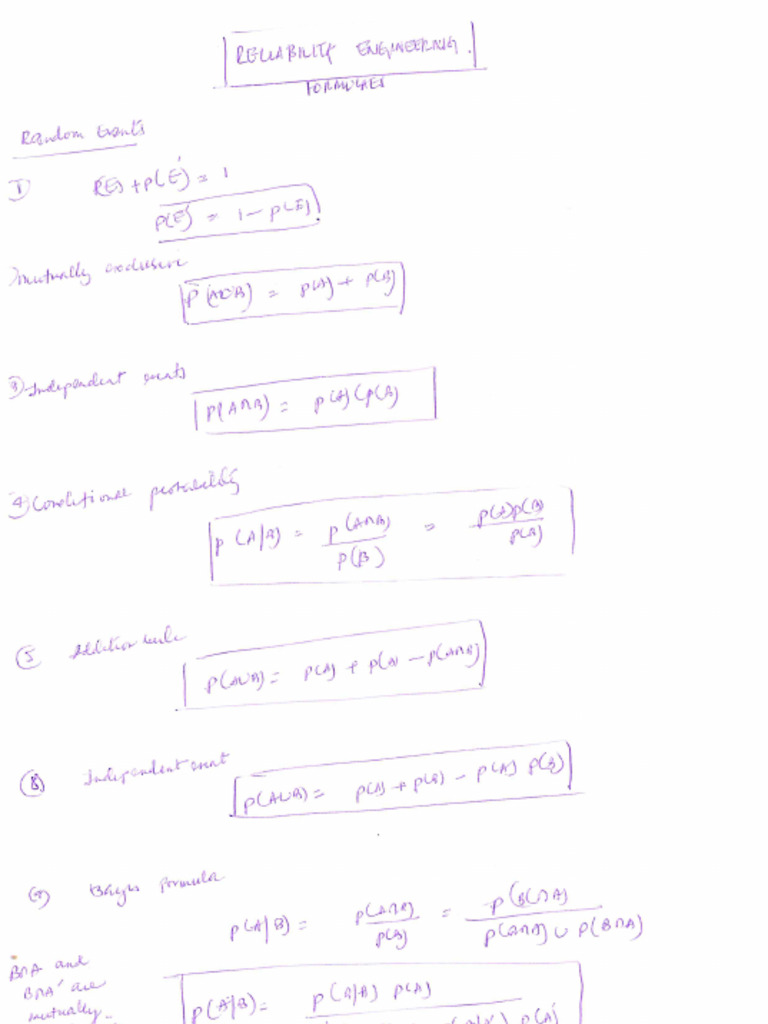 RELIABILITY ENGINEERING.
FORMULAES
Random Events
① P(E) + P(E') = 1
P(E') = 1 - P(E)
mutually exclusive
P(A∪B) = P(A) + P(B)
③ Independent events
P(A∩B) = P(A) (P(B)
④ Conditional probability
P(A/B) = P(A∩B) / P(B) = P(A)P(B) / P(B)
⑤ Addition rule
P(A∪B) = P(A) + P(B) - P(A∩B)
⑥ Independent event
P(A∪B) = P(A) + P(B) - P(A) P(B)
⑦ Bayes formula
P(A/B) = P(A∩B) / P(B) = P(B∩A) / P(B∩A) ∪ P(B∩A)
B∩A and
B∩A' are
mutually
P(A/B) = P(B/A) P(A)
P(A'